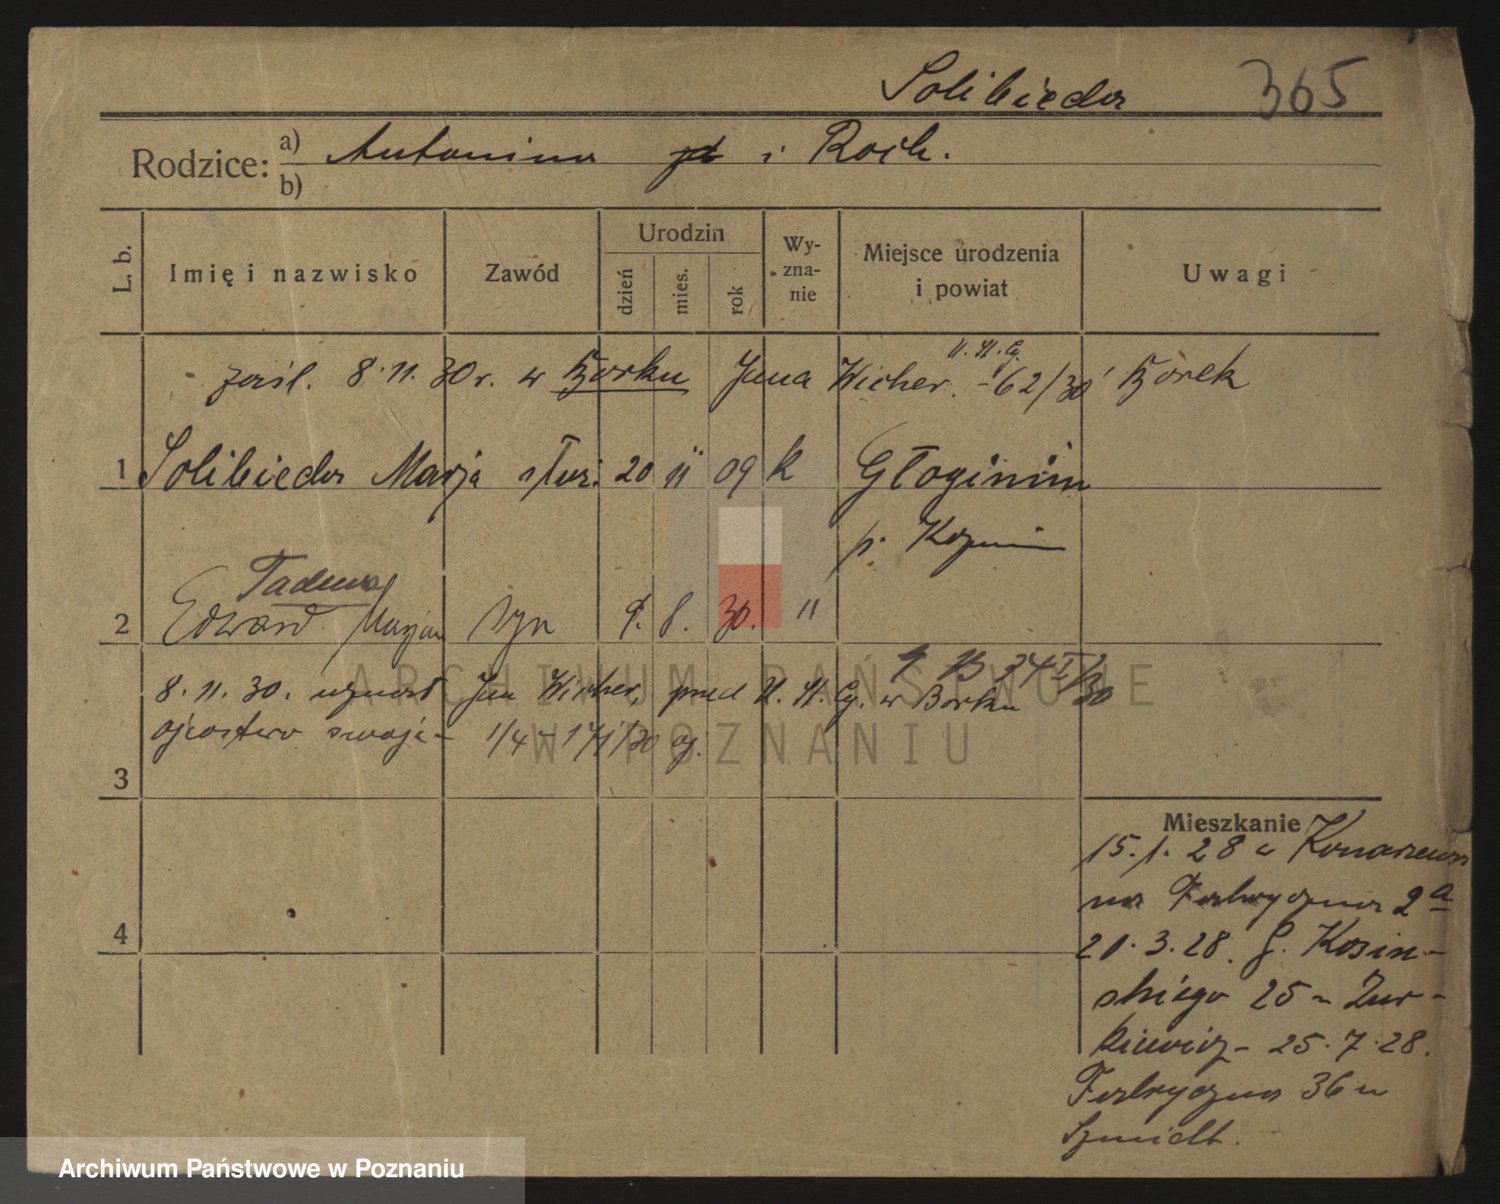 Solibieda 365
Rodzice: a) Antonina i Roch.
b)
L. b. Imię i nazwisko Zawód Urodzin dzień mies. rok Wy-zna-nie Miejsce urodzenia i powiat Uwagi
U. St. C.
zaśl. 8.11.30r. w Borku Jana Wicher. - 62/30 Borek
1 Solibieda Marja służ. 20 11 09 k Głoginin
p. Kozmin
Tadeusz
2 Edward Marjan syn 9. 8. 30. "
8.11.30. uznał Jan Wicher, przed U. St. C. w Borku
ojcostwo swoje -
3
4
Mieszkanie
15.1.28 u Konarzews
na Fabryczna 2a
21.3.28. G. Kosin-
skiego 25 u Żur-
kiewicz - 25.7.28.
Fabryczna 36 u
Szmidt.
ARCHIWUM PAŃSTWOWE
W POZNANIU
Archiwum Państwowe w Poznaniu